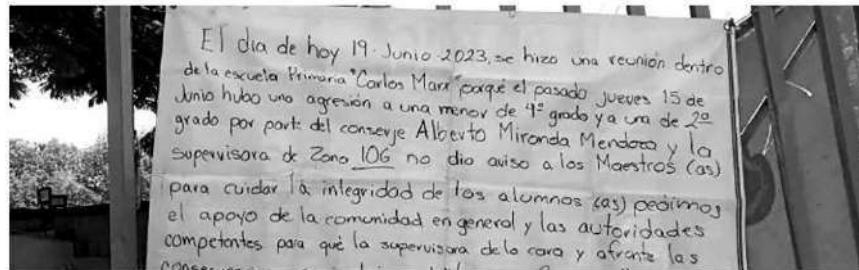 El dia de hoy 19. Junio 2023, se hizo una reunión dentro
de la escuela Primaria "Carlos Marx" porqué el pasado jueves 15 de
Junio hubo una agresión a una menor de 4º grado y a una de 2º
grado por parte del conserje Alberto Miranda Mendoza y la
supervisora de Zona 106 no dio aviso a los Maestros (as)
para cuidar la integridad de los alumnos (as) pedimos
el apoyo de la comunidad en general y las autoridades
competentes para qué la supervisora de la cara y afronte las